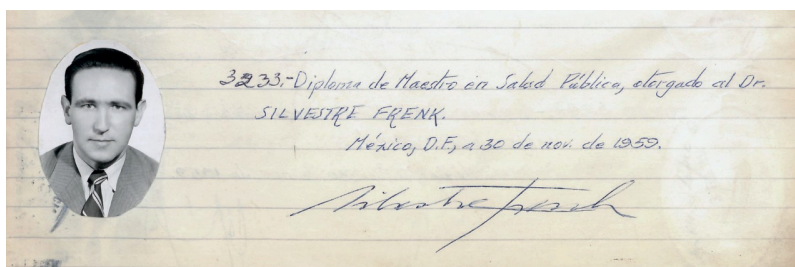 3233.- Diploma de Maestro en Salud Pública, otorgado al Dr.
SILVESTRE FRENK.
México, D.F., a 30 de nov. de 1959.
Silvestre Frenk